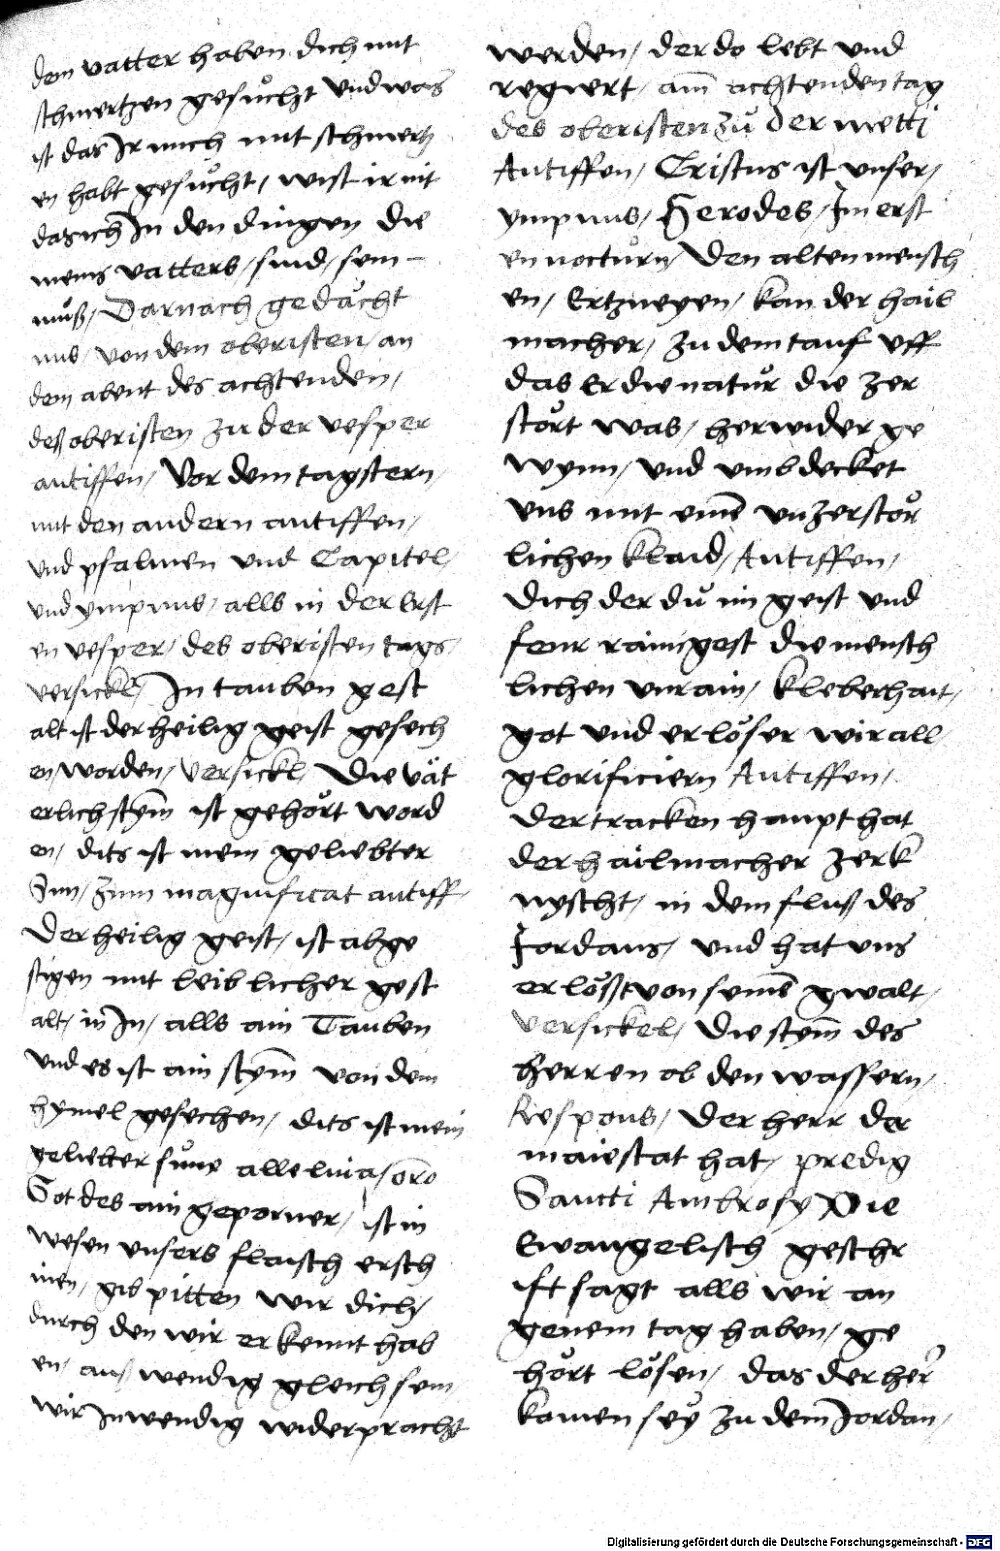 dem vatter haben dich mit
schmertzen gesůcht vnd was
ist das Ir mich mit schmertz
en habt gesůcht, wist ir nit
das ich In den dingen die
meins vatters, sind, sein
můß, Darnach gedächt
nus, von dem oberisten, an
dem abent des achtenden,
deß oberisten zu der vesper
antiffen, Vor dem tagstern,
mit den andern antiffen,
vnd psalmen vnd Capitel,
vnd ympnus, alls in der erst
en vesper, des oberisten tags,
versickl, In tauben gest
alt ist der heilig geist gesech
en worden, versickl, Die vät
erlich stym̄ ist gehört word
en, dits ist mein geliebter
Sun, zum magnificat antiff,
Der heilig geist, ist abge
stigen mit leiblicher gest
alt, in In, alls ain Tauben
vnd es ist ain stym̄ von dem
hymel gesechen, dits ist mein
geliebter sůne alleluia, oro
Got des ain geporner, ist in
wesen vnsers flaisch ersch
inen, gib pitten wir dich,
durch den wir erkennt hab
en, außwendig gleich sein
wir Inwendig widerpracht
werden, der do lebt vnd
regiert, am̄ achtenden tag
des oberisten zů der metti
Antiffen, Cristus ist vnser,
ympnus, Herodes, Im erst
en nocturn, Den alten mensch
en, Ertzneyen, kam der hail
macher, zu dem tauf vff
das Er die natůr die zer
stört was, herwider ge
wynn, vnd vmbdecket
vns mit eim̄e vnzerstör
lichen klaid, Antiffen,
Dich der dů im geist vnd
feur rainigest die mensch
lichen vnrain, kleberhait,
got vnd erlöser wir all,
glorificiern Antiffen,
Der tracken haupt hat
der hailmacher zerk
nyscht, in dem fluß des
Jordans, vnd hat vns
erlößt von seim̄e gwalt,
versickel, Die stym̄ des
herren ob den wassern,
Respons, Der herr der
maiestat hat, predig
Sancti Ambrosy Die
Ewangelisch geschr
ift sagt alls wir an
genem tag haben, ge
hört lösen, das der her
kamen sey zu dem Jordan,
Digitalisierung gefördert durch die Deutsche Forschungsgemeinschaft - DFG